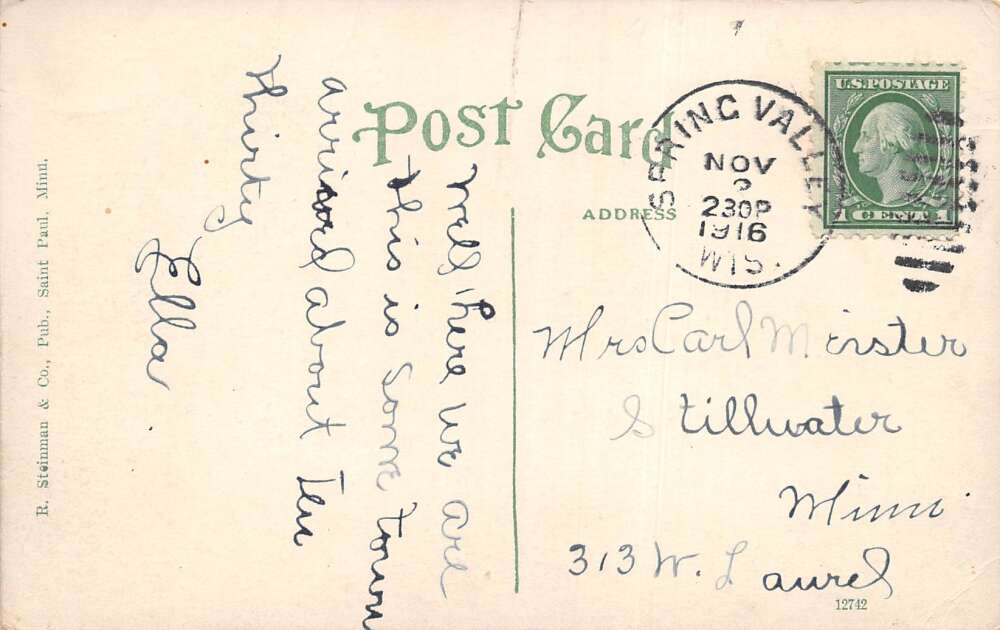 Post Card
ADDRESS
SPRING VALLEY
NOV
230P
1916
WIS.
U.S. POSTAGE
1 CENT 1
Well here we are
this is some town
arrived about ten
thirty
Ella.
Mrs Carl Meister
Stillwater
Minn
313 W. Laurel
12742
R. Steinman & Co., Pub., Saint Paul, Minn.